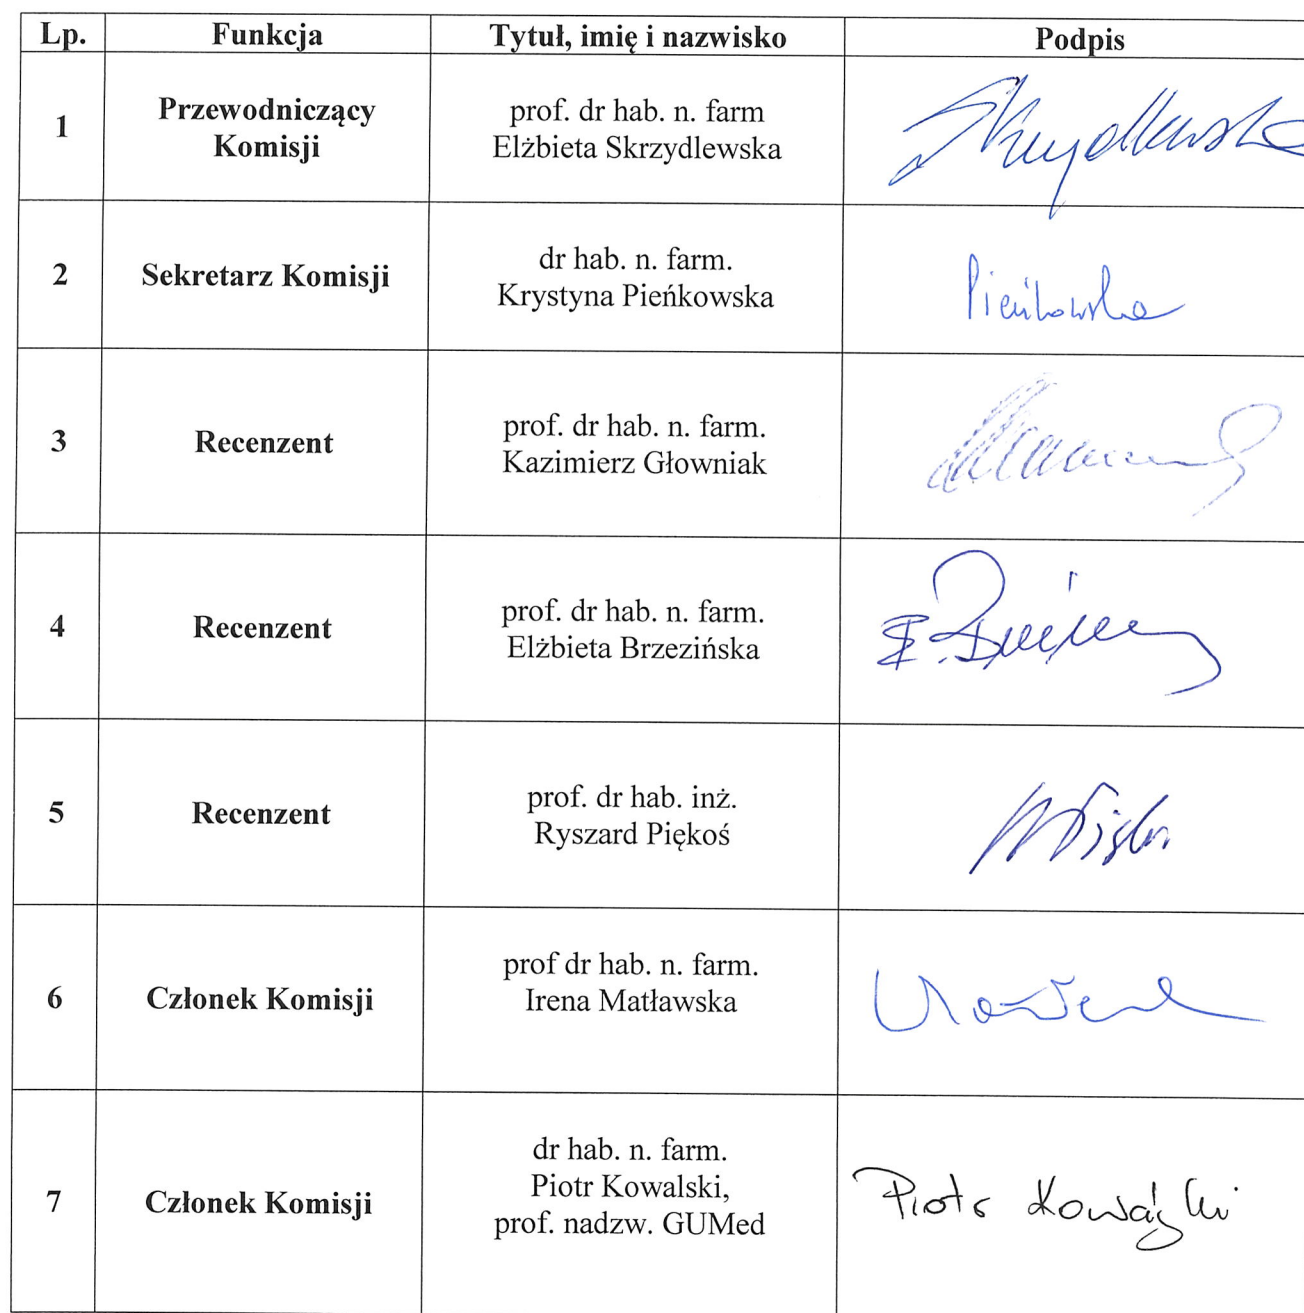 Lp. Funkcja Tytuł, imię i nazwisko Podpis
1 Przewodniczący Komisji prof. dr hab. n. farm
Elżbieta Skrzydlewska Skrzydlewska
2 Sekretarz Komisji dr hab. n. farm.
Krystyna Pieńkowska Pieńkowska
3 Recenzent prof. dr hab. n. farm.
Kazimierz Głowniak
4 Recenzent prof. dr hab. n. farm.
Elżbieta Brzezińska
5 Recenzent prof. dr hab. inż.
Ryszard Piękoś
6 Członek Komisji prof dr hab. n. farm.
Irena Matławska
7 Członek Komisji dr hab. n. farm.
Piotr Kowalski,
prof. nadzw. GUMed Piotr Kowalski